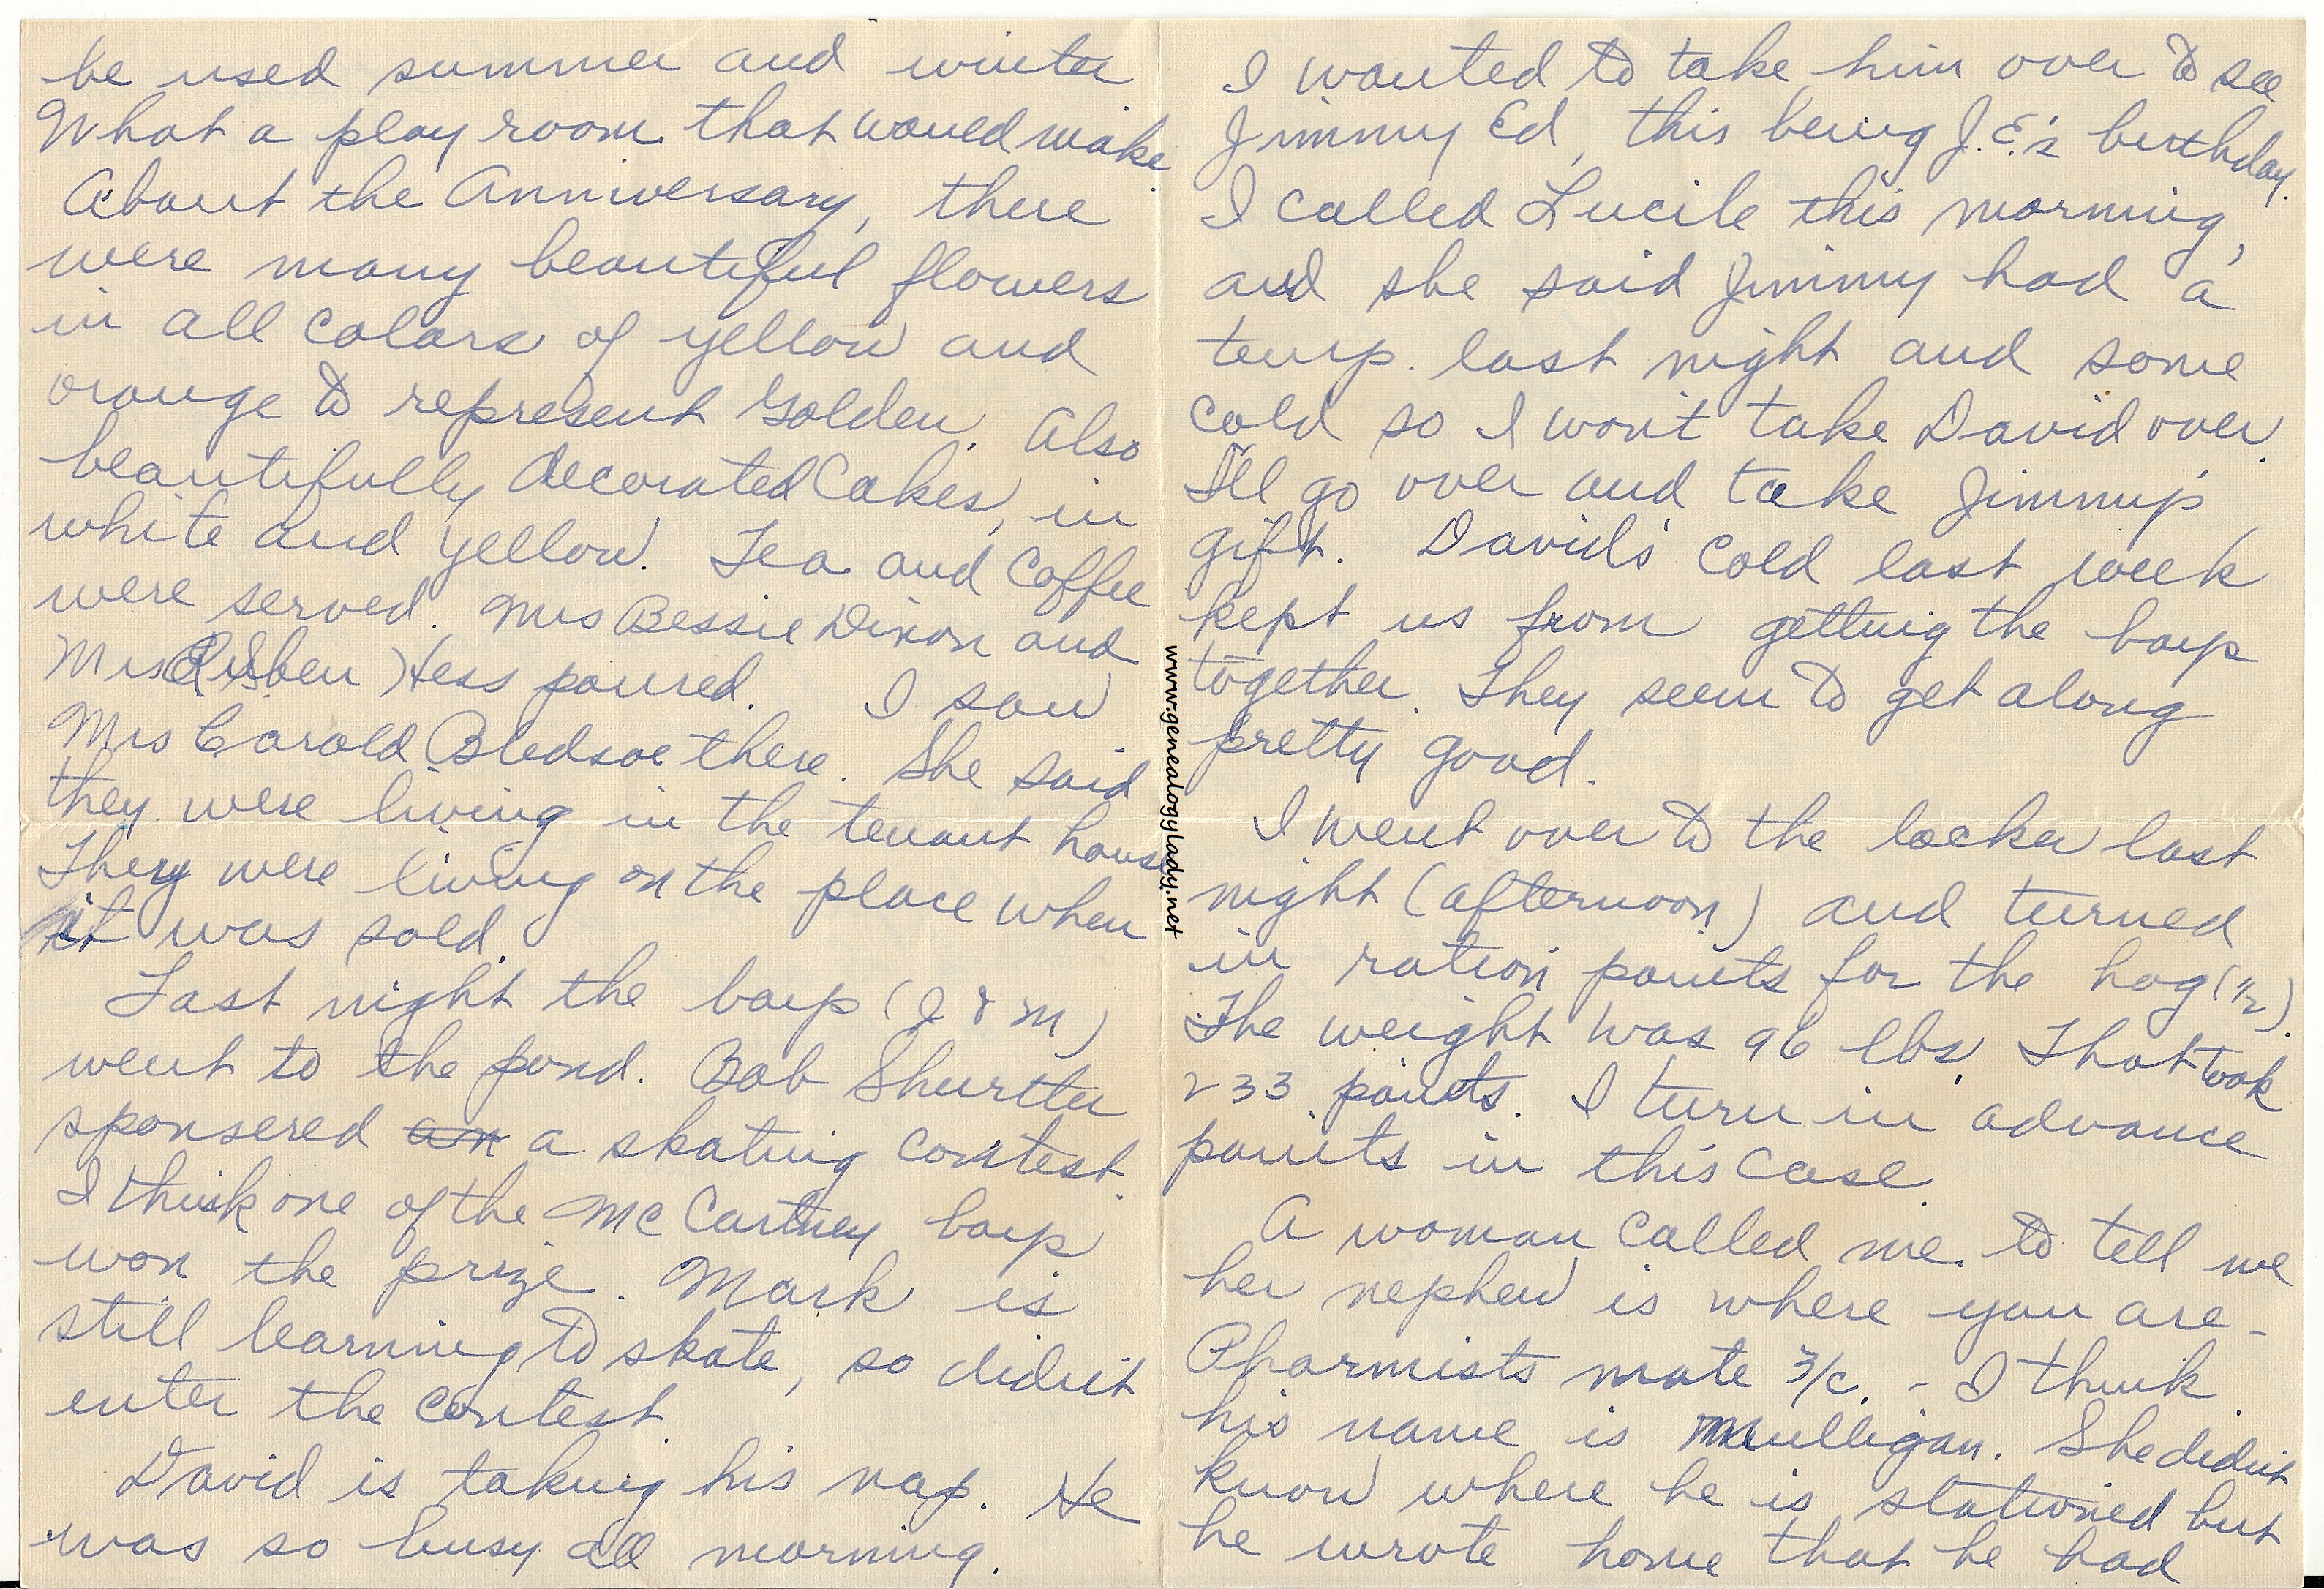 be used summer and winter
What a play room that would make.
About the Anniversary, there
were many beautiful flowers
in all colors of yellow and
orange to represent Golden. Also
beautifully decorated Cakes, in
white and yellow. Tea and Coffee
were served. Mrs Bessie Dixon and
Mrs Hess poured. I saw
Mrs Carold Bledsoe there. She said
they were living in the tenant house
They were living on the place when
it was sold.
Last night the boys (J & M)
went to the pond. Bob Shurtter
sponsered an a skating contest.
I think one of the McCartney boys
won the prize. Mark is
still learning to skate, so didn't
enter the contest.
David is taking his nap. He
was so busy all morning.
I wanted to take him over to see
Jimmy Ed, this being J.E.'s birthday.
I called Lucile this morning,
and she said Jimmy had a
temp. last night and some
cold so I won't take David over.
I'll go over and take Jimmy's
gift. David's cold last week
kept us from getting the boys
together. They seem to get along
pretty good.
I went over to the locker last
night (afternoon) and turned
in ration points for the hog (1/2).
The weight was 96 lbs. That took
233 points. I turn in advance
points in this case.
A woman called me to tell me
her nephew is where you are -
Pharmists mate 3/c. - I think
his name is Mulligan. She didn't
know where he is stationed but
he wrote home that he had
www.genealogylady.net